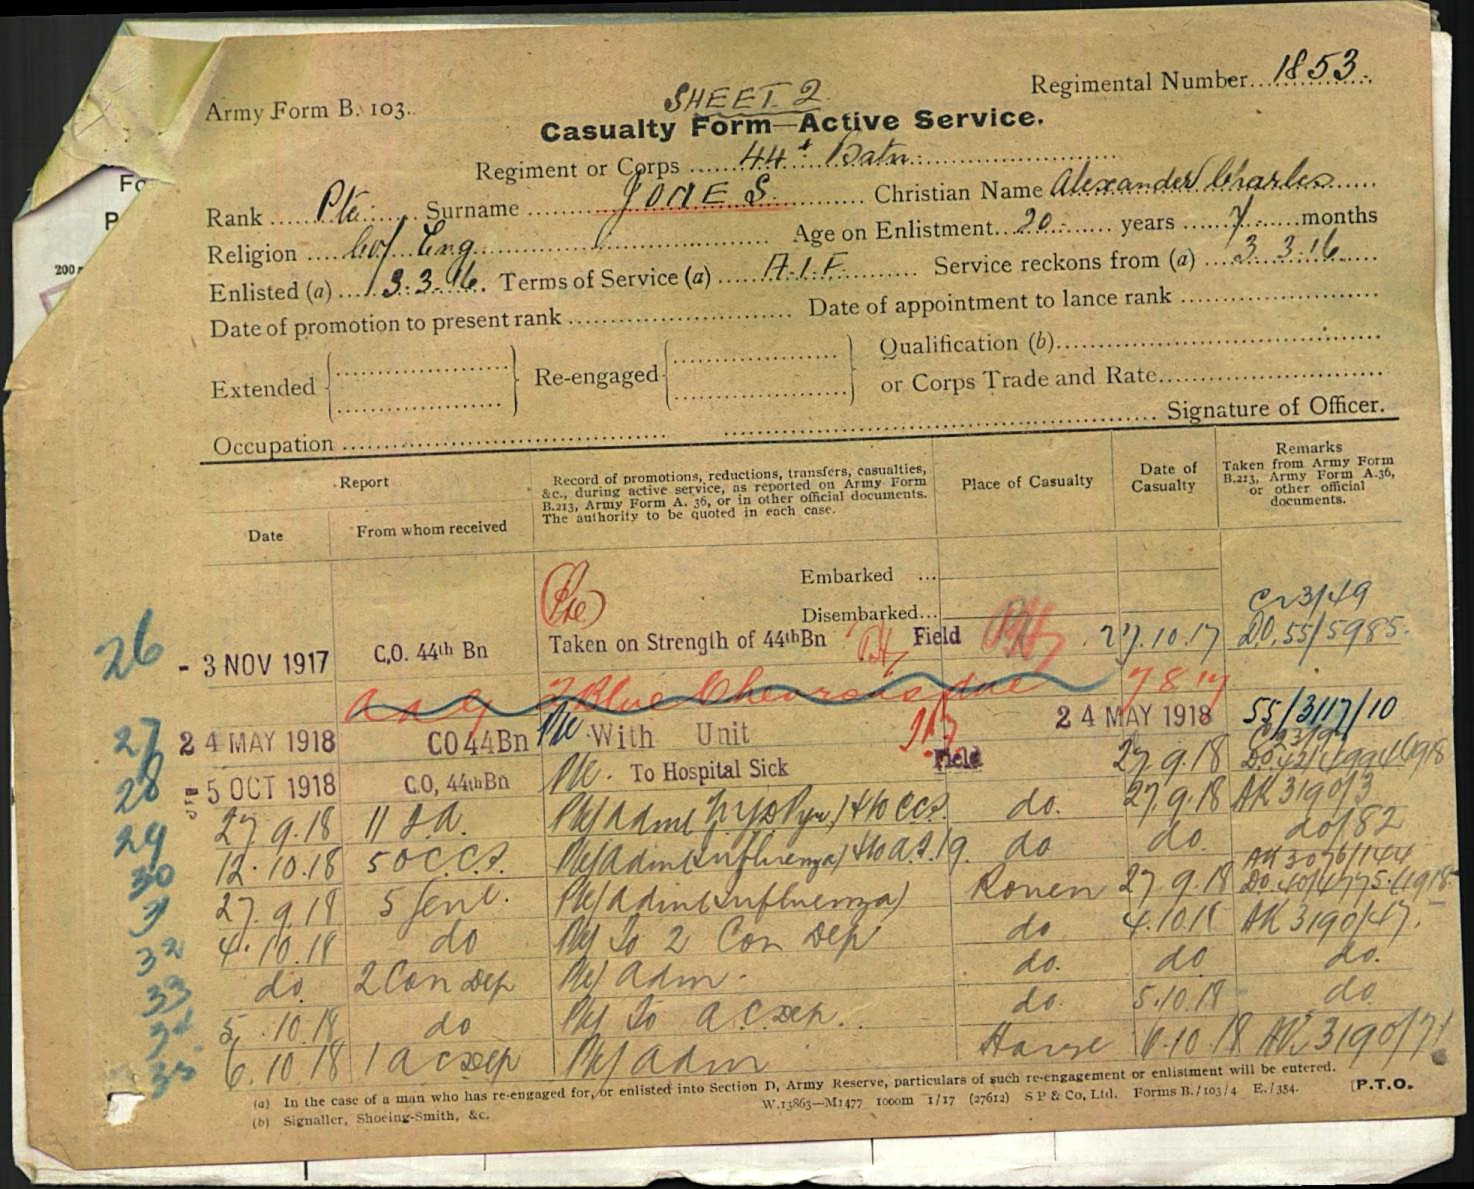 SHEET 2
Army Form B. 103.
Regimental Number 1853
Casualty Form—Active Service.
Regiment or Corps 44th Batn.
Rank Pte Surname JONES Christian Name Alexander Charles
Religion C of Eng Age on Enlistment 20 years 7 months
Enlisted (a) 3.3.16. Terms of Service (a) A.I.F. Service reckons from (a) 3.3.16
Date of promotion to present rank Date of appointment to lance rank
Extended Re-engaged Qualification (b)
or Corps Trade and Rate
Occupation Signature of Officer.
Report
Date
From whom received
Record of promotions, reductions, transfers, casualties,
&c., during active service, as reported on Army Form
B.213, Army Form A. 36, or in other official documents.
The authority to be quoted in each case.
Place of Casualty
Date of
Casualty
Remarks
Taken from Army Form
B.213, Army Form A.36,
or other official
documents.
Embarked ...
(Pte) Disembarked...
26 - 3 NOV 1917 C.O. 44th Bn Taken on Strength of 44th Bn Field 27.10.17 D.O. 55/5985.
2 Blue Chevrons due 7 8 17
27 24 MAY 1918 CO 44 Bn Pte With Unit 24 MAY 1918 55/3/17/10
28 5 OCT 1918 C.O, 44th Bn Pte. To Hospital Sick Field 27.9.18
29 27.9.18 11 F.A. Pte/ Adm to CCS. do. 27.9.18 AK 3190/3
30 12.10.18 50 C.C.S. Pte/ Adm (Influenza) do do do/82
31 27.9.18 5 Genl. Pte/ Adm (Influenza) Rouen 27.9.18
32 4.10.18 do Pte/ To 2 Con Dep do 4.10.18 AK 3190/47.
33 do 2 Con Dep Pte/ Adm. do. do do.
34 5.10.18 do Pte/ To A.C. Dep. do. 5.10.18 do
35 6.10.18 1 A C Dep Pte/ Adm Havre 6.10.18 AK 3190/71
(a) In the case of a man who has re-engaged for, or enlisted into Section D, Army Reserve, particulars of such re-engagement or enlistment will be entered.
(b) Signaller, Shoeing-Smith, &c.
W.13863—M1477 1000m 1/17 (27612) S P & Co, Ltd. Forms B./103/4 E./354.
[P.T.O.